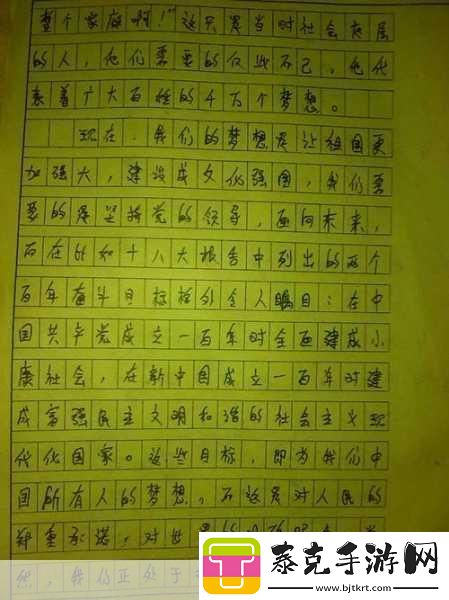 整个家庭啊！"这只是当时社会底层
的人，他们需要的仅此而已，他代
表着广大百姓的千万个梦想。
现在，我们的梦想是让祖国更
加强大，建设成文化强国，我们需
要的是坚持党的领导，面向未来，
而在此如十八大报告中列出的两个
百年奋斗目标格外令人瞩目：在中
国共产党成立一百年时全面建成小
康社会，在新中国成立一百年时建
成富强民主文明和谐的社会主义现
代化国家。这些目标，即为我们中
国所有人的梦想，不这是对人民的
郑重承诺，对世
然，我们正处于
泰克手游网
www.bjtkrt.com